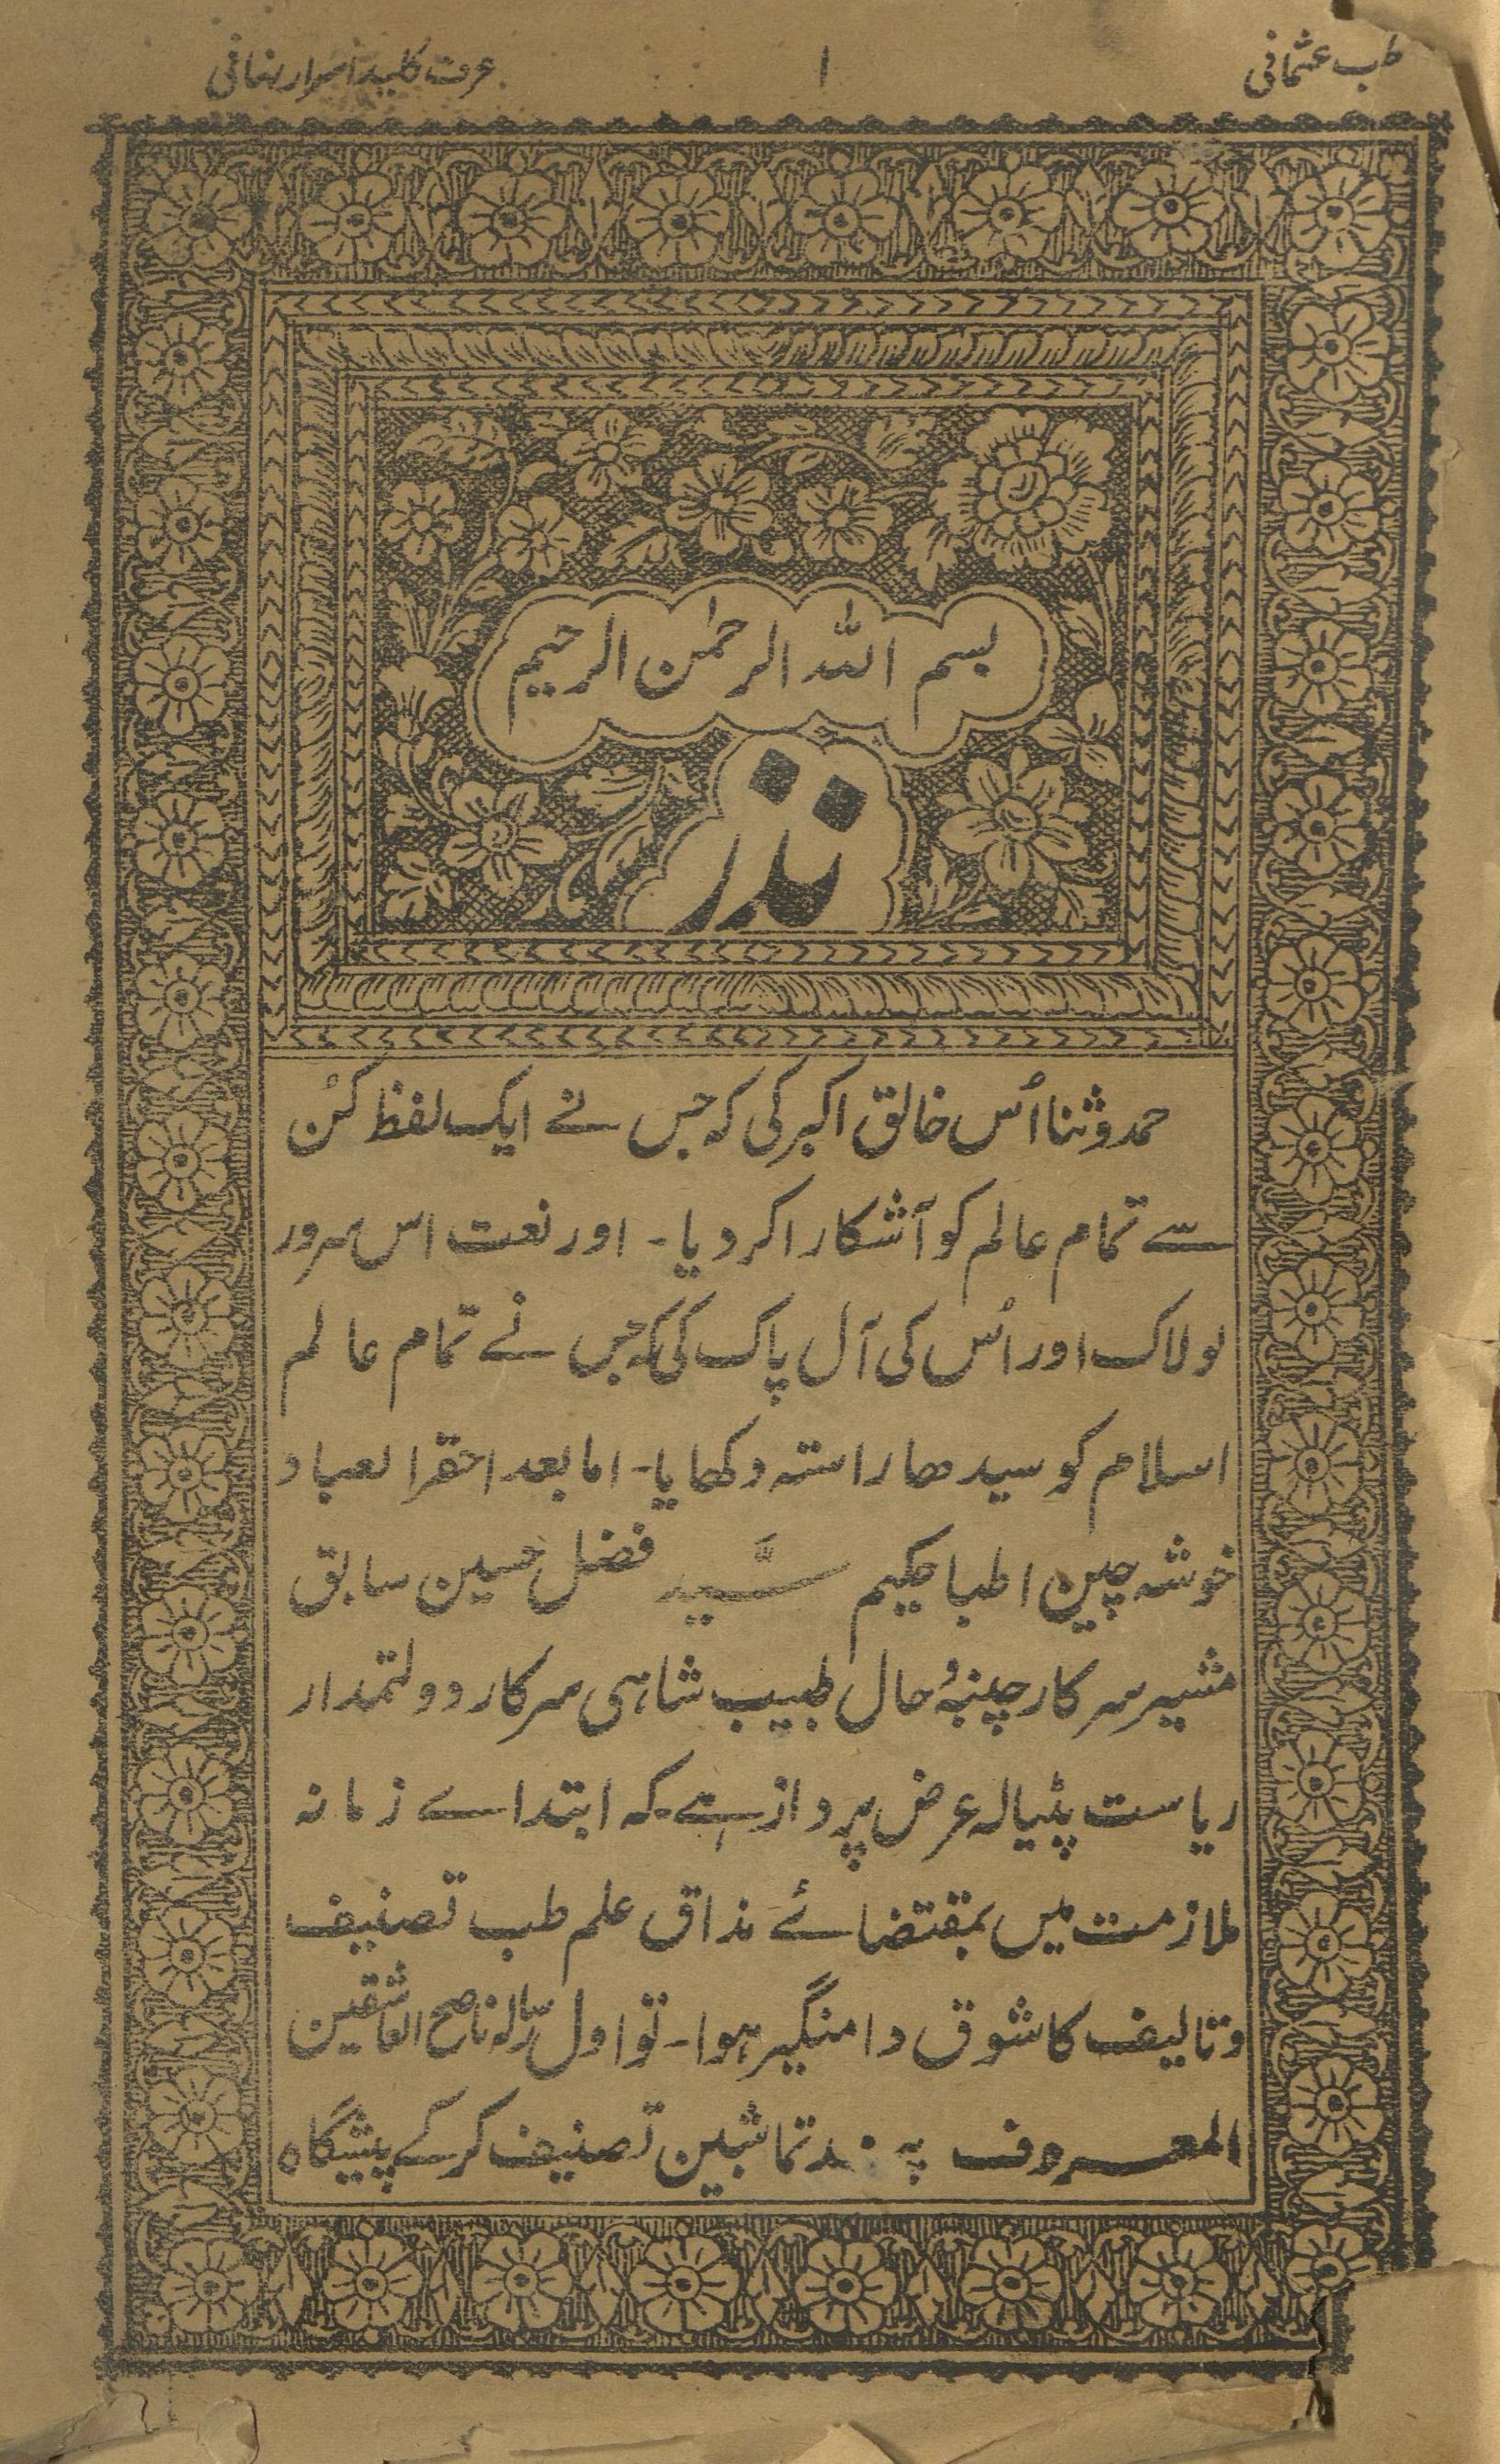 طب عثمانی
۱
عرف کلید اسرار نہانی
بسم اللہ الرحمٰن الرحیم
نذر
حمد و ثنا اُس خالق اکبر کی کہ جس نے ایک لفظ کُن
سے تمام عالم کو آشکارا کر دیا۔ اور نعت اس سرور
لولاک اور اُس کی آل پاک کی کہ جس نے تمام عالم
اسلام کو سیدھا راستہ دکھایا۔ اما بعد احقر العباد
خوشہ چین اطبا حکیم سَیّد فضل حسین سابق
مشیر سرکار چنبہ و حال طبیب شاہی سرکار دولتمدار
ریاست پٹیالہ عرض پرداز ہے۔ کہ ابتداے زمانہ
ملازمت میں بمقتضائے مذاق علم طب تصنیف
و تالیف کا شوق دامنگیر ہوا۔ تو اول رسالہ ناصح العاشقین
المعروف پہ ند تماشبین تصنیف کر کے پیشگاہ